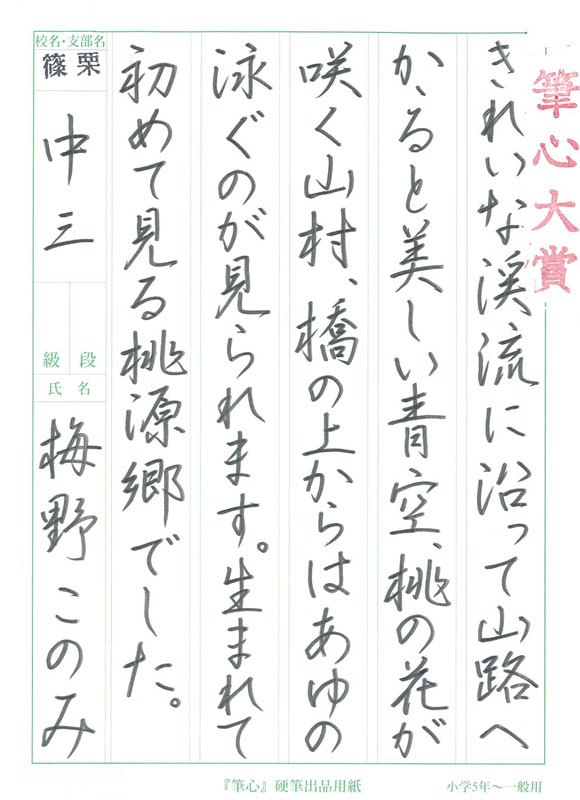 筆心大賞
きれいな渓流に沿って山路へ
かゝると美しい青空、桃の花が
咲く山村、橋の上からはあゆの
泳ぐのが見られます。生まれて
初めて見る桃源郷でした。
校名・支部名
篠栗
中三
級 段
氏 名
梅野このみ
『筆心』硬筆出品用紙
小学5年〜一般用